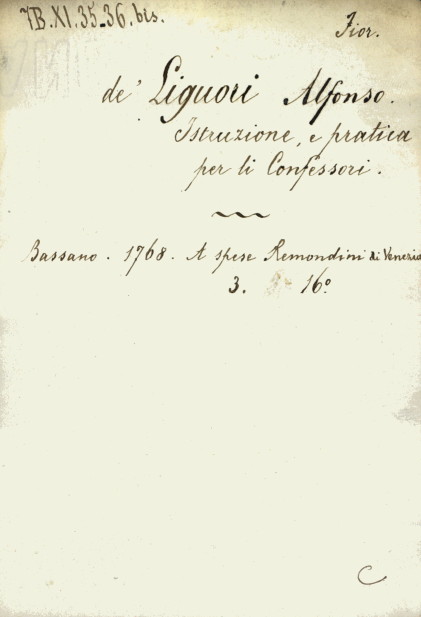 7B.XI.35-36.bis.
Fior.
de' Liguori Alfonso.
Istruzione, e pratica
per li Confessori.
Bassano. 1768. A spese Remondini di Venezia
3. 16º
C